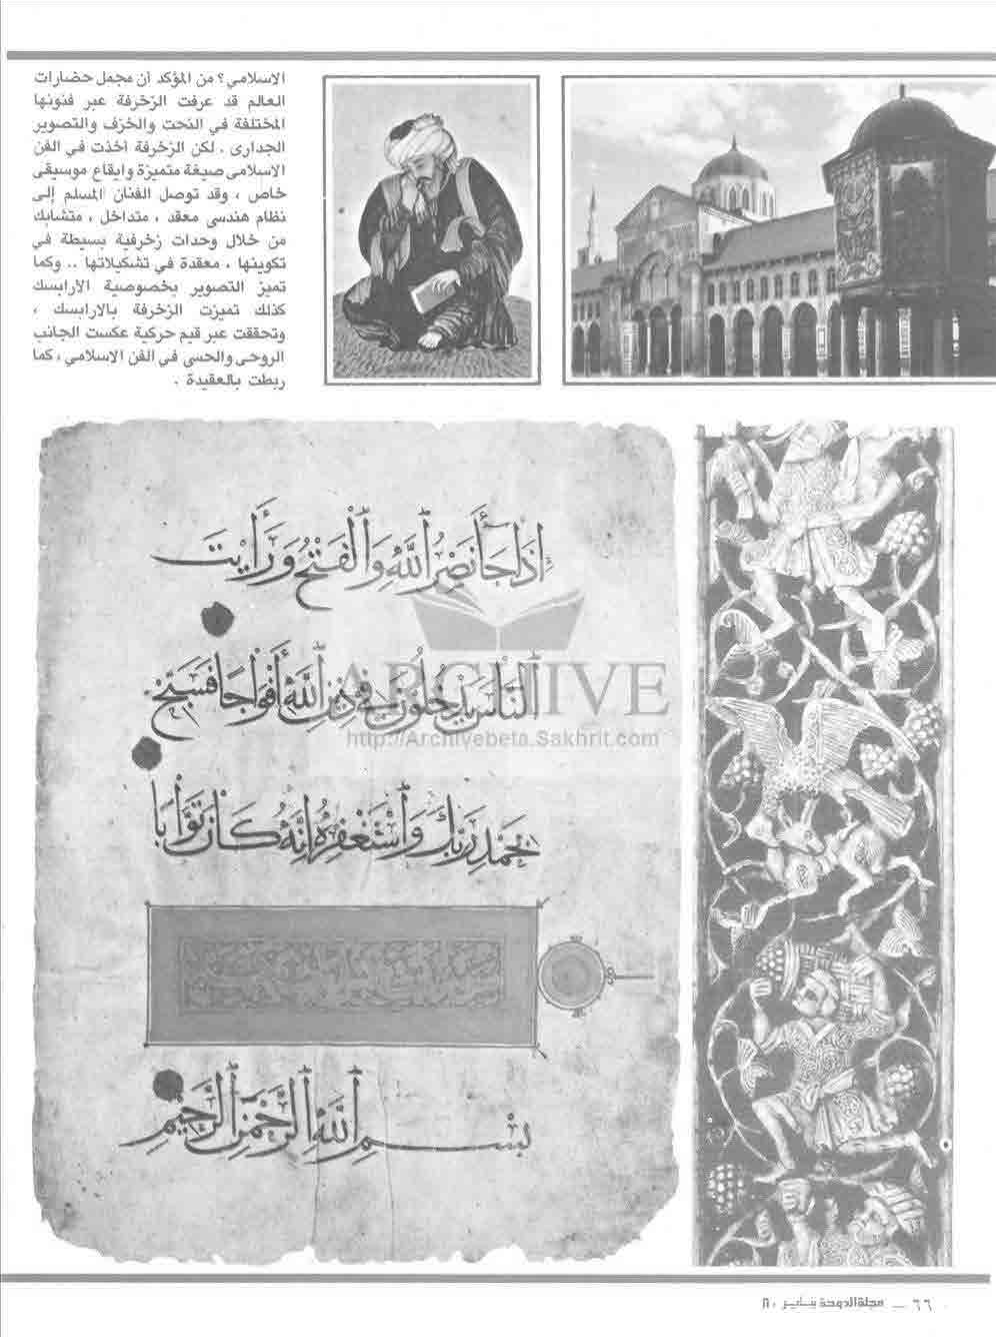 الاسلامي؟ من المؤكد أن مجمل حضارات
العالم قد عرفت الزخرفة عبر فنونها
المختلفة في النحت والخزف والتصوير
الجدارى . لكن الزخرفة أخذت في الفن
الاسلامى صيغة متميزة وايقاع موسيقى
خاص ، وقد توصل الفنان المسلم إلى
نظام هندسى معقد ، متداخل ، متشابك
من خلال وحدات زخرفية بسيطة في
تكوينها ، معقدة في تشكيلاتها .. وكما
تميز التصوير بخصوصية الارابسك
كذلك تميزت الزخرفة بالارابسك ،
وتحققت عبر قيم حركية عكست الجانب
الروحى والحسى في الفن الاسلامي ، كما
ربطت بالعقيدة .
إِذَا جَاءَ نَصْرُ اللَّهِ وَالْفَتْحُ وَرَأَيْتَ
النَّاسَ يَدْخُلُونَ فِي دِينِ اللَّهِ أَفْوَاجًا فَسَبِّحْ
بِحَمْدِ رَبِّكَ وَاسْتَغْفِرْهُ إِنَّهُ كَانَ تَوَّابًا
بِسْمِ اللَّهِ الرَّحْمَنِ الرَّحِيمِ
ARCHIVE
http://Archivebeta.Sakhrit.com
٦٦ – مجلة الدوحة يناير ٨٠